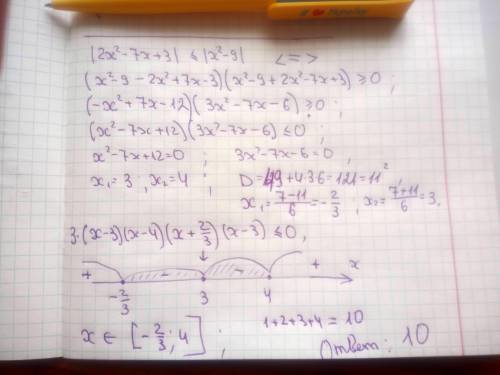 |2x²-7x+3| ≤ |x²-9| <=>
(x²-9-2x²+7x-3)(x²-9+2x²-7x+3) ≥0 ;
(-x²+7x-12)(3x²-7x-6) ≥0 ;
(x²-7x+12)(3x²-7x-6) ≤0 ;
x²-7x+12=0 ; 3x²-7x-6=0 ,
x₁=3 ; x₂=4 ; D=49+4·36=121=11² ,
x₁=(7-11)/6=-2/3 , x₂=(7+11)/6=3.
3·(x-3)(x-4)(x+2/3)(x-3) ≤0 ,
+ - - + x
-2/3 3 4
1+2+3+4=10
x ∈ [-2/3 ; 4] ; Ответ: 10